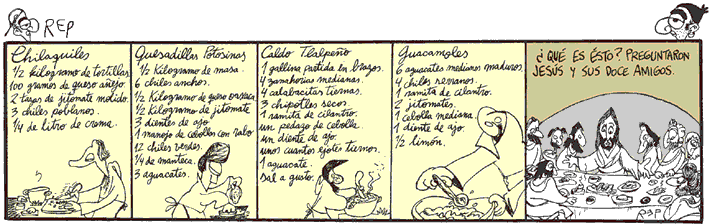 REP
Chilaquiles
1/2 kilogramo de tortillas
100 gramos de queso añejo
2 tazas de jitomate molido.
3 chiles poblanos.
1/4 de litro de crema.
Quesadillas Potosinas
1/2 Kilogramo de masa.
6 chiles anchos.
1/2 Kilogramo de queso
1/2 Kilogramo de jitomate
3 dientes de ajo
1 manojo de cebollas con rabo.
12 chiles verdes.
1/4 de manteca.
3 aguacates.
Caldo Tlalpeño
1 gallina partida en trozos.
4 zanahorias medianas.
4 calabacitas tiernas.
3 chipotles secos.
1 ramita de cilantro.
un pedazo de cebolla.
un diente de ajo.
unos cuantos ejotes tiernos.
1 aguacate.
sal a gusto.
Guacamoles
6 aguacates medianos maduros.
4 chiles serranos.
1 ramita de cilantro.
2 jitomates.
1 cebolla mediana.
1 diente de ajo.
1/2 limón.
¿QUÉ ES ÉSTO? PREGUNTARON
JESÚS Y SUS DOCE AMIGOS.
REP